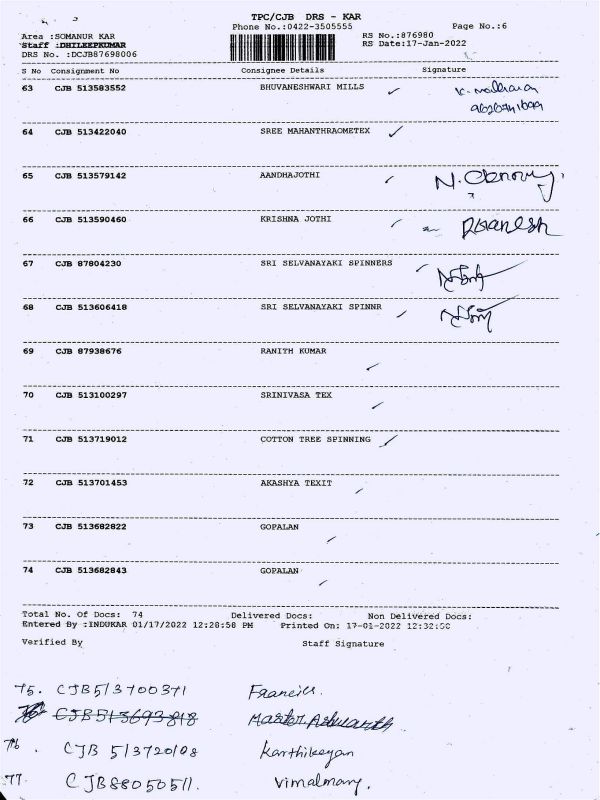 TPC/CJB DRS - KAR
Phone No.:0422-3505555 Page No.:6
Area :SOMANUR KAR RS No.:876980
Staff :DHILEEPKUMAR RS Date:17-Jan-2022
DRS No. :DCJB87698006
S No Consignment No Consignee Details Signature
63 CJB 513583552 BHUVANESHWARI MILLS
64 CJB 513422040 SREE MAHANTHRAOMETEX
65 CJB 513579142 AANDHAJOTHI
66 CJB 513590460 KRISHNA JOTHI
67 CJB 87804230 SRI SELVANAYAKI SPINNERS
68 CJB 513606418 SRI SELVANAYAKI SPINNR
69 CJB 87938676 RANITH KUMAR
70 CJB 513100297 SRINIVASA TEX
71 CJB 513719012 COTTON TREE SPINNING
72 CJB 513701453 AKASHYA TEXIT
73 CJB 513682822 GOPALAN
74 CJB 513682843 GOPALAN
Total No. Of Docs: 74 Delivered Docs: Non Delivered Docs:
Entered By :INDUKAR 01/17/2022 12:28:58 PM Printed On: 17-01-2022
Verified By Staff Signature
75. CJB513700371 Francills.
76. CJB513693818
76. CJB 513720108 Karthikeyan
77. CJB88050511. Vimalmary.